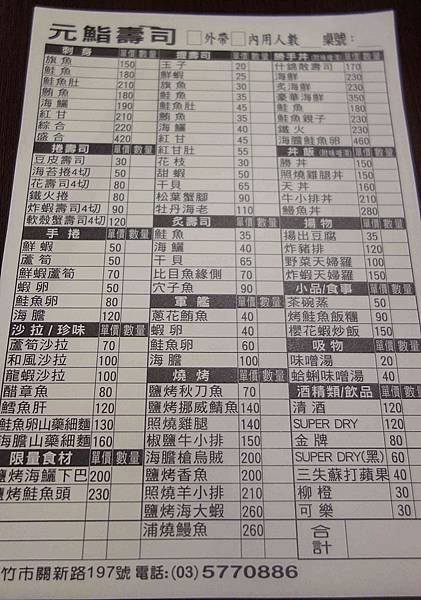 元鮨壽司 □外帶□內用人數 桌號:
刺身 單價 數量
旗魚 150
鮭魚 180
鮭魚肚 210
鮪魚 180
海鱺 190
紅甘 210
綜合 220
盛合 420
捲壽司 單價 數量
豆皮壽司 30
海苔捲4切 50
花壽司4切 80
鐵火捲 80
炸蝦壽司4切 90
軟殼蟹壽司4切 120
手捲 單價 數量
鮮蝦 50
蘆筍 50
鮮蝦蘆筍 70
蝦卵 50
鮭魚卵 80
海膽 120
沙拉/珍味 單價 數量
蘆筍沙拉 70
和風沙拉 100
龍蝦沙拉 100
醋章魚 80
鱈魚肝 120
鮭魚卵山藥細麵 130
海膽山藥細麵 160
限量食材 單價 數量
鹽烤海鱺下巴 200
鹽烤鮭魚頭 230
握壽司 單價 數量
玉子 20
鮮蝦 25
旗魚 30
鮭魚 35
鮭魚肚 45
鮪魚 35
海鱺 40
紅甘 45
紅甘肚 55
花枝 30
甜蝦 50
干貝 65
松葉蟹腳 90
牡丹海老 110
炙壽司 單價 數量
鮭魚 35
海鱺 40
干貝 65
比目魚緣側 70
穴子魚 90
軍艦 單價 數量
蔥花鮪魚 40
蝦卵 40
鮭魚卵 60
海膽 100
燒烤 單價 數量
鹽烤秋刀魚 70
鹽烤挪威鯖魚 140
照燒雞腿 140
椒鹽牛小排 150
海膽槍烏賊 200
鹽烤香魚 200
照燒羊小排 210
鹽烤海大蝦 260
浦燒鰻魚 260
勝手丼(附味噌湯) 單價 數量
什錦散壽司 170
海鮮 230
炙海鮮 230
豪華海鮮 350
鮭魚 180
鮭魚親子 230
鐵火 230
海膽鮭魚卵 460
丼飯(附味噌湯) 單價 數量
勝丼 150
照燒雞腿丼 150
天丼 160
牛小排丼 210
鰻魚丼 280
揚物 單價 數量
揚出豆腐 35
炸豬排 120
野菜天婦羅 150
炸鮮蝦天婦羅 150
小品/食事 單價 數量
茶碗蒸 50
烤鮭魚飯糰 90
櫻花蝦炒飯 150
吸物 單價 數量
味噌湯 20
蛤蜊味噌湯 40
酒精類/飲品 單價 數量
清酒 120
SUPER DRY 120
金牌 80
SUPER DRY(黑) 60
三矢蘇打蘋果 40
柳橙 30
可樂 30
合計
竹市關新路197號 電話:(03)5770886